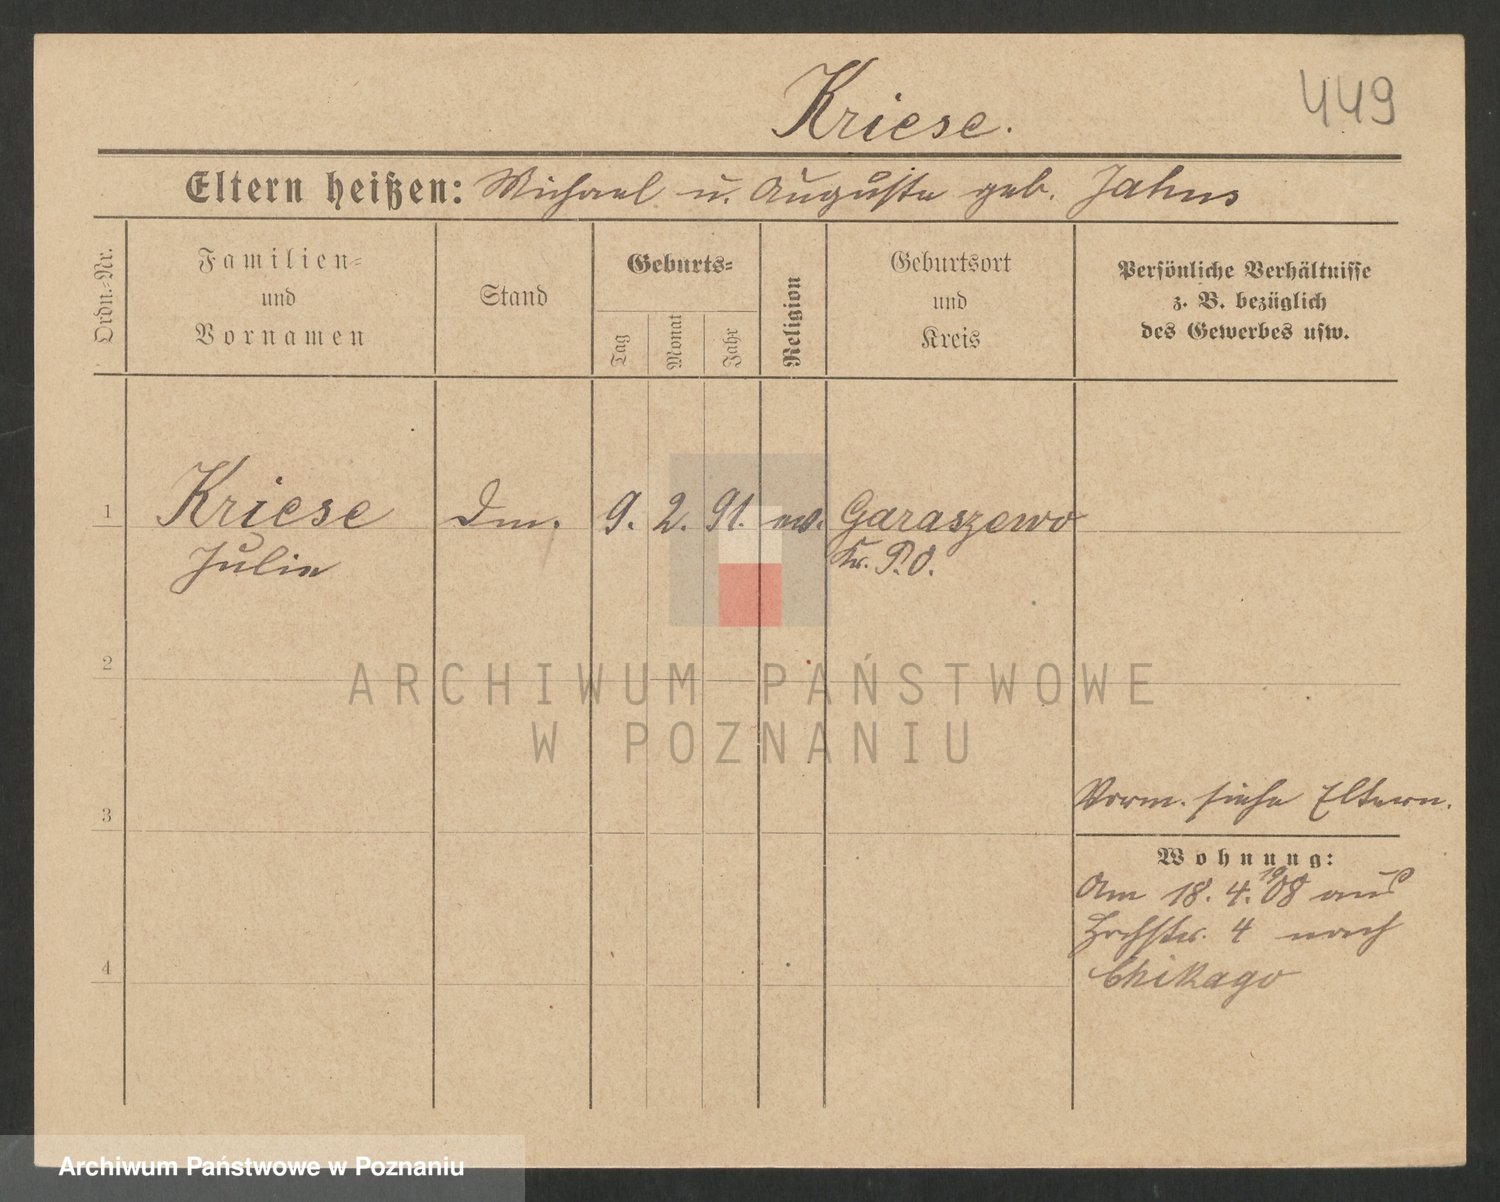 449
Kriese.
Eltern heißen: Michael u. Auguste geb. Jahns
Ordn.-Nr.
Familien-
und
Vornamen
Stand
Geburts-
Tag
Monat
Jahr
Religion
Geburtsort
und
Kreis
Persönliche Verhältnisse
z. B. bezüglich
des Gewerbes usw.
1 Kriese Dm. 9. 2. 91. ev. Garaszewo
Julie Kr. P.O.
2
ARCHIWUM PAŃSTWOWE
W POZNANIU
3
Vorm. siehe Eltern.
Wohnung:
Am 18. 4. 1908 aus
Hochstr. 4 nach
Chikago
4
Archiwum Państwowe w Poznaniu